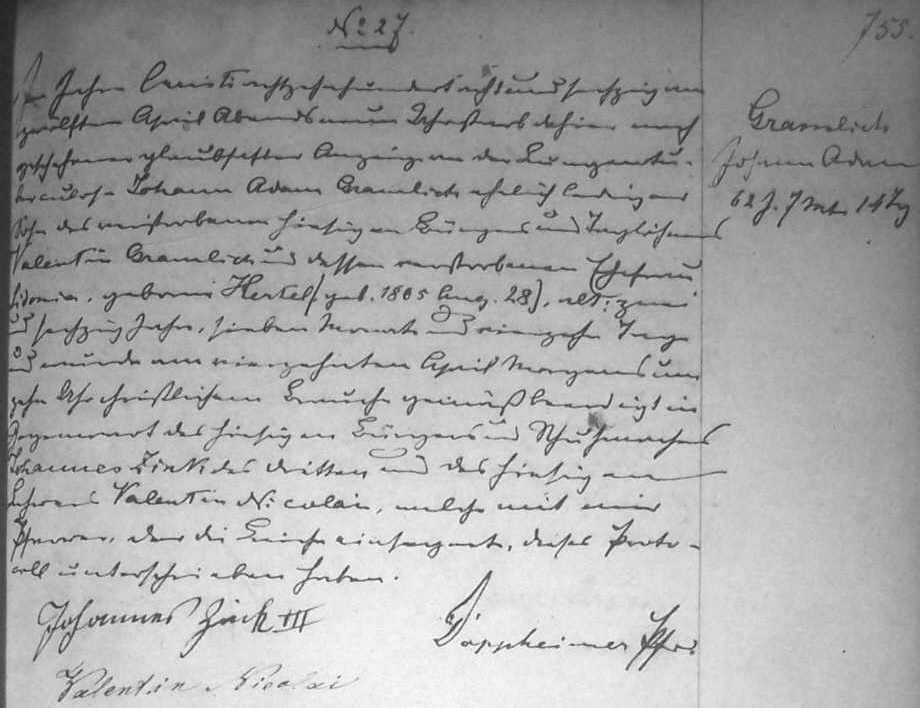 No 27.
755.
Im Jahre Christi achtzehnhundert acht und sechzig am
zwölften April Abends neun Uhr starb dahier nach
geschehener glaubhafter Anzeige an der Lungentu-
berculose Johann Adam Gramlich ehelich lediger
Sohn des verstorbenen hiesigen Bürgers und Taglöhners
Valentin Gramlich und dessen verstorbenen Ehefrau
Sidonia, geborne Hertel (geb. 1805 Aug. 28), alt: zwei
und sechzig Jahre, sieben Monate und vierzehn Tage
und wurde am vierzehnten April Morgens um
zehn Uhr christlichem Brauche gemäß beerdigt in
Gegenwart des hiesigen Bürgers und Schuhmachers
Johannes Zink des dritten und des hiesigen
Lehrers Valentin Nicolai, welche mit mir
Pfarrer, der die Leiche einsegnete, dieses Proto-
coll unterschrieben haben.
Johannes Zink III
Doppheimer Pfr.
Valentin Nicolai
Gramlich
Johann Adam
62 J. 7 Mt. 14 Tg